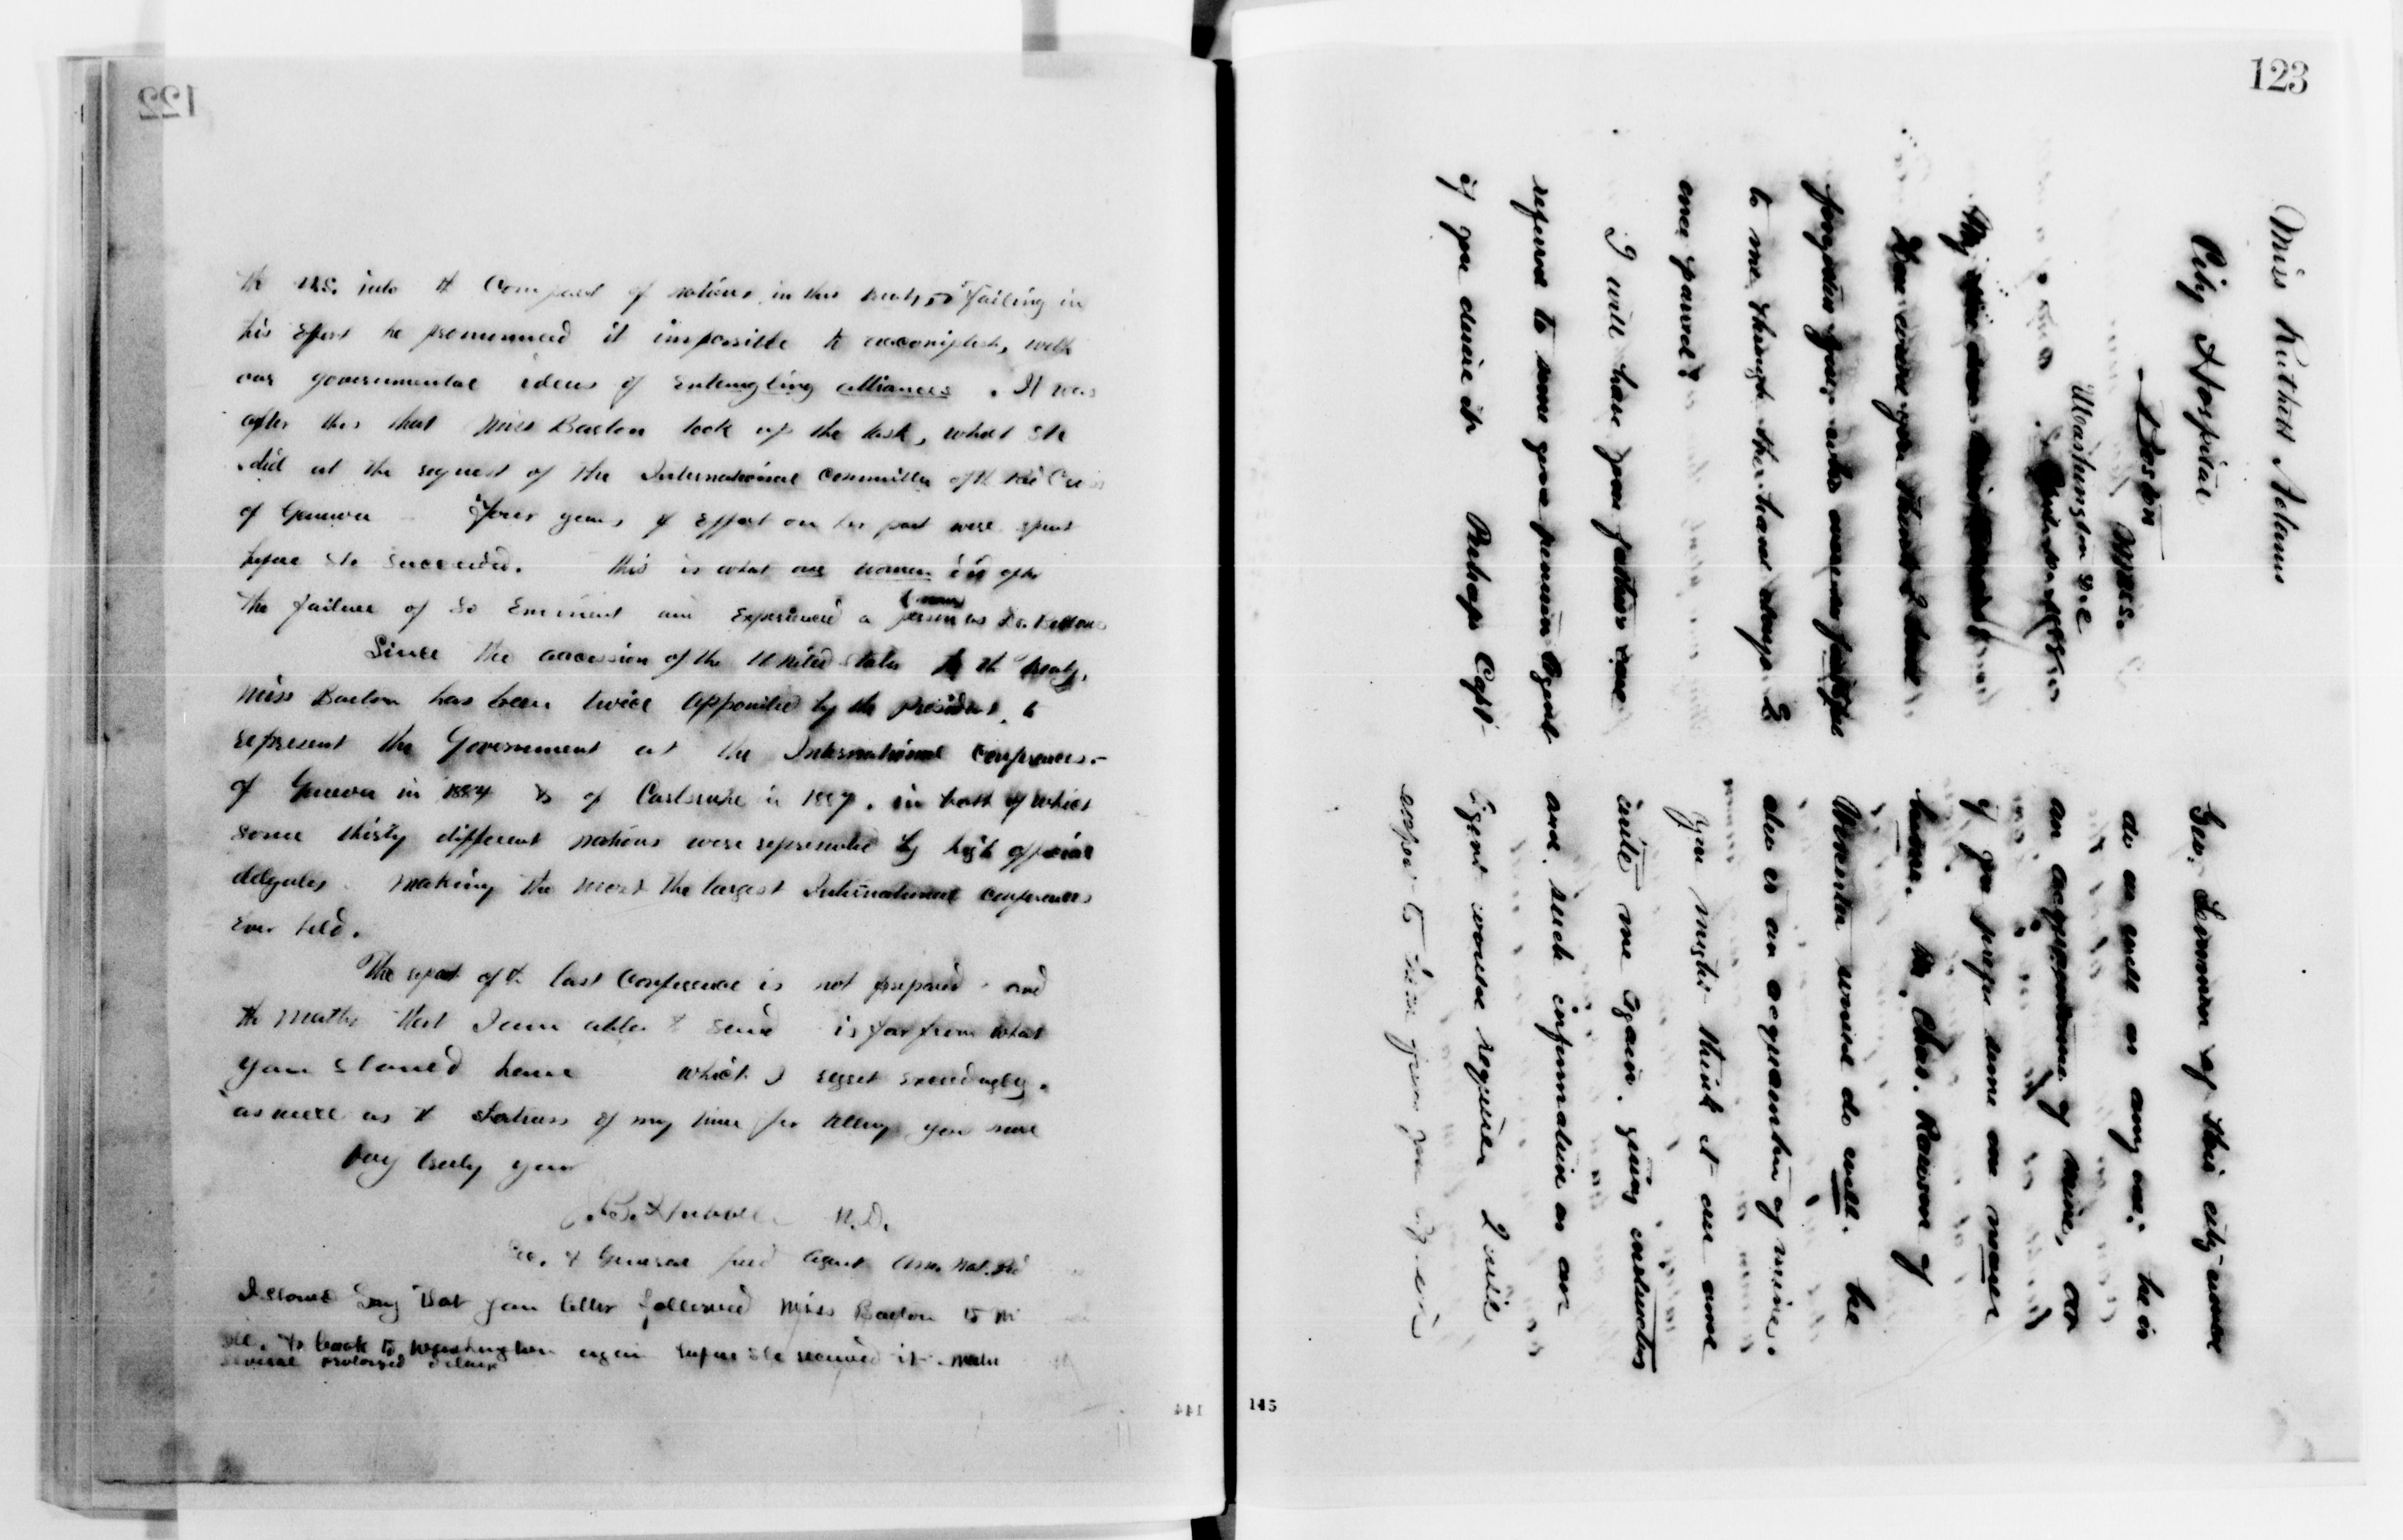 122
the U.S. into the Compact of nations in this treaty. Failing in
his effort he pronounced it impossible to accomplish, with
our governmental ideas of entangling alliances. It was
after this that Miss Barton took up the task, what she
did at the request of the International Committee of the Red Cross
of Geneva Four years of effort on her part were spent
before she succeeded. this is what one woman did after
the failure of so eminent and experienced a person as Dr. Bellows
Since the accession of the United States to the treaty,
Miss Barton has been twice appointed by the President, to
represent the Government at the International Conferences.—
of Geneva in 1884 & of Carlsruhe in 1887. in both of which
some thirty different nations were represented by high official
delegates making the most the largest International conferences
ever held.
The report of the last Conference is not prepared and
the matter that I am able to send is far from what
you should have which I regret exceedingly.
as well as the shortness of my time for telling you more
Very truly yours
J.B. Hubbell M.D.
Sec. & General field agent Am. Nat. Red
I should say that your letter followed Miss Barton to
Ill. & back to Washington again before she received it. with
several prolonged delays
144
123
Miss Ruthett Adams
City Hospital
Boston Mass.
Washington D.C.
My
Dear
forgotten you, who were so faithful
to me through the hard days I
once passed?
I will have your father's case
referred to some good pension Agent
if you desire it Perhaps Capt
Geo. Lemon of this city would
do as well as any one. he is
an acquaintance of mine, or
if you prefer some one nearer
home. Mr. Chas. Rawson of
Worcester would do well. he
also is an acquaintance of mine.
If you might think it over and
write me again. giving instructions
and such information as an
Agent would require I will
expect to hear from you again
145